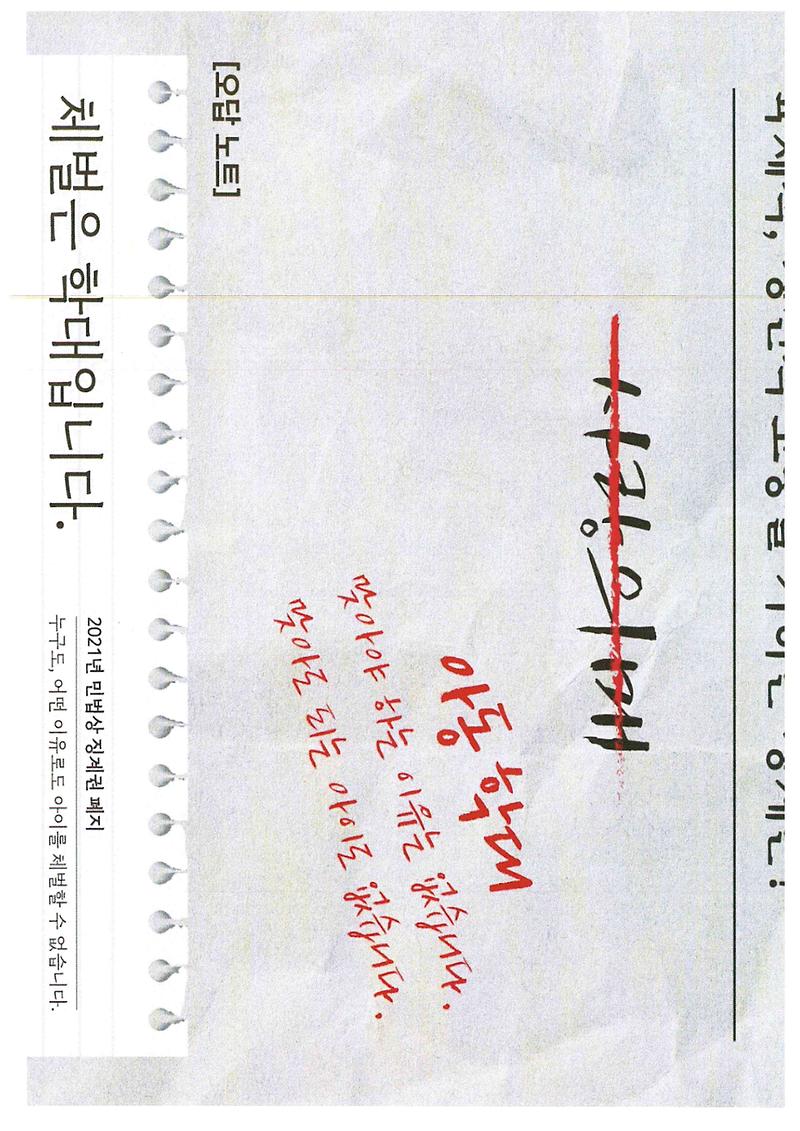 사랑의 매
아동 학대
맞아야 하는 이유는 없습니다.
맞아도 되는 아이도 없습니다.
[오답 노트]
체벌은 학대입니다.
2021년 민법상 징계권 폐지
누구도, 어떤 이유로도 아이를 체벌할 수 없습니다.